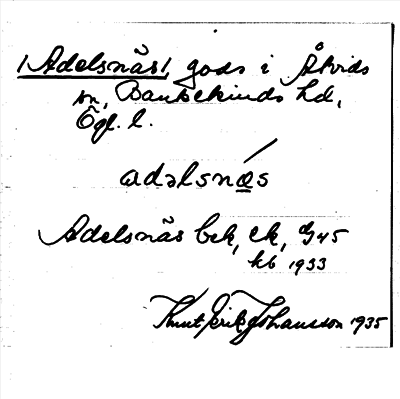 /Adelsnäs/, gods i Åtvids
sn, Bankekinds hd,
Ögl. l.
adəlsnæ̲s
Adelsnäs bck, ek, G45
kb 1933
Knut Erik Johansson 1935